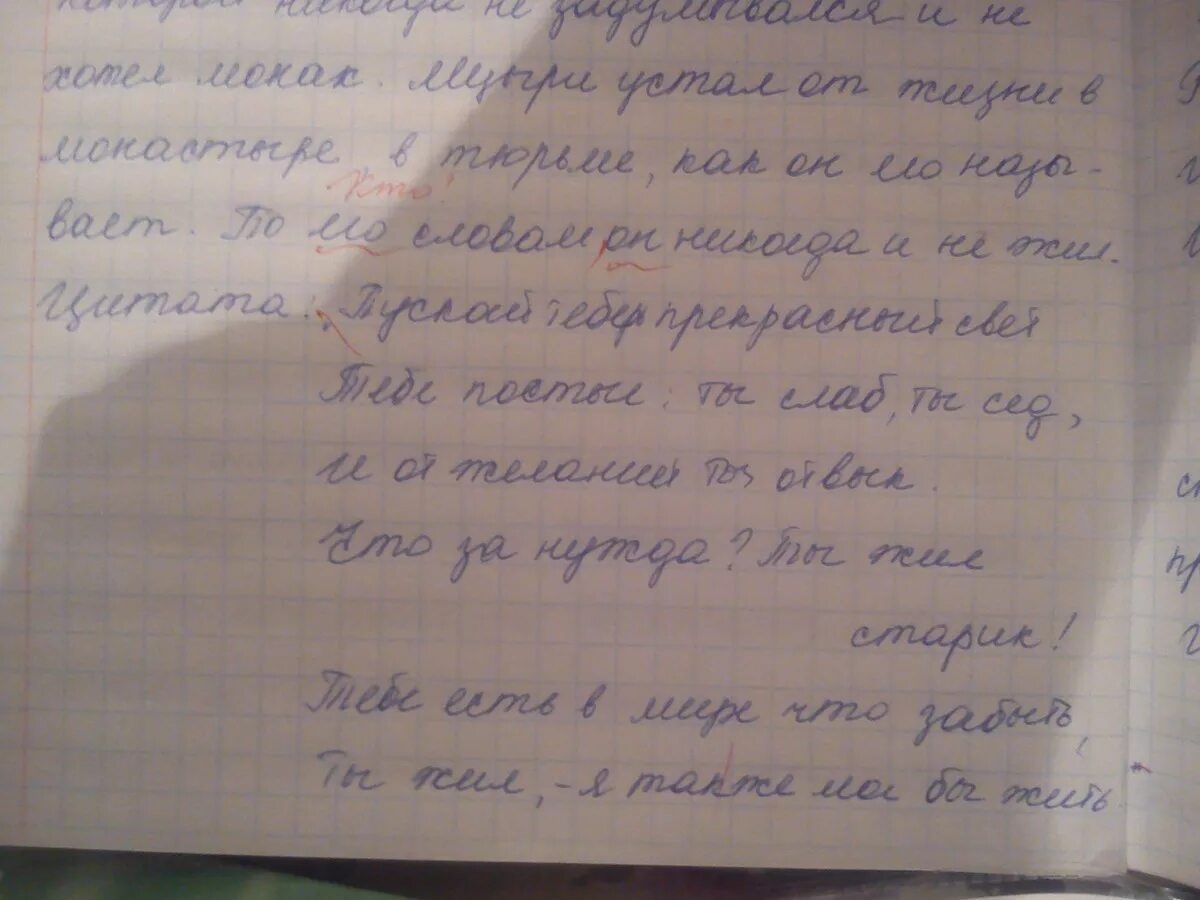 которой никогда не задумывался и не
хотел монах. Мцыри устал от жизни в
монастыре, в тюрьме, как он его назы-
Кто?
вает. По его словам, он никогда и не жил.
Цитата: „Пускай теберь прекрасный свет
Тебе постыл: ты слаб, ты сед,
И от желаний ты отвык.
Что за нужда? Ты жил
старик!
Тебе есть в мире что забыть,
Ты жил, - я также мог бы жить